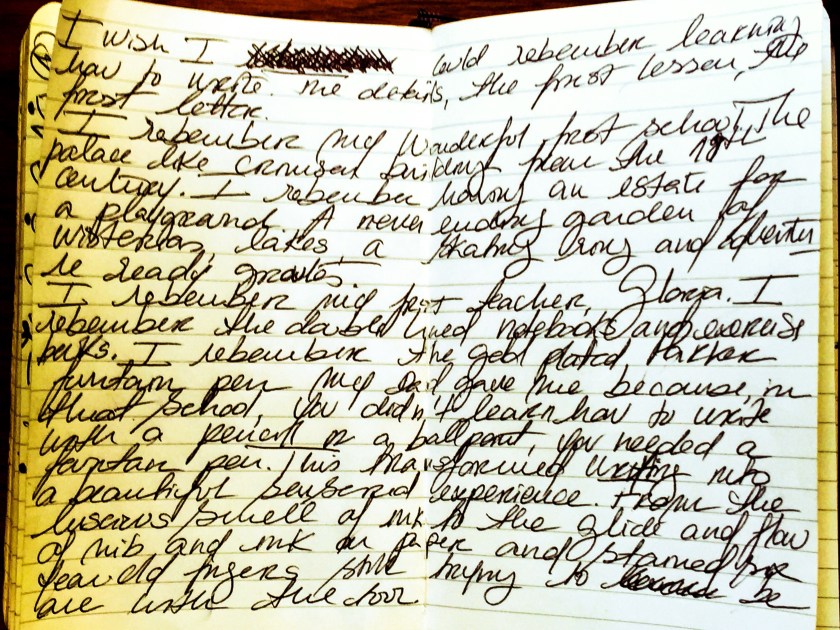 I wish I could rebember learning
how to write. The details, the first lesson, the
first letter.
I rebember my wonderful first school. The
palace like crimson building from the 19th
century. I rebember having an estate for
a playground. A never ending garden of
wisterias, lakes, a skating and adventu
re ready grottos.
I rebember my first teacher, Gloria. I
rebember the double lined notebooks and exercise
books. I rebember the gold plated Parker
funtain pen my Dad gave me because, in
that school, you didn't learn how to write
with a pencil or a ballpoint, you needed a
funtain pen. This transformed writing into
a beautiful sensorial experience. From the
luscious smell of ink to the glide and flow
of nib and ink on paper and stained six
year old fingers still trying to be
one with the tool